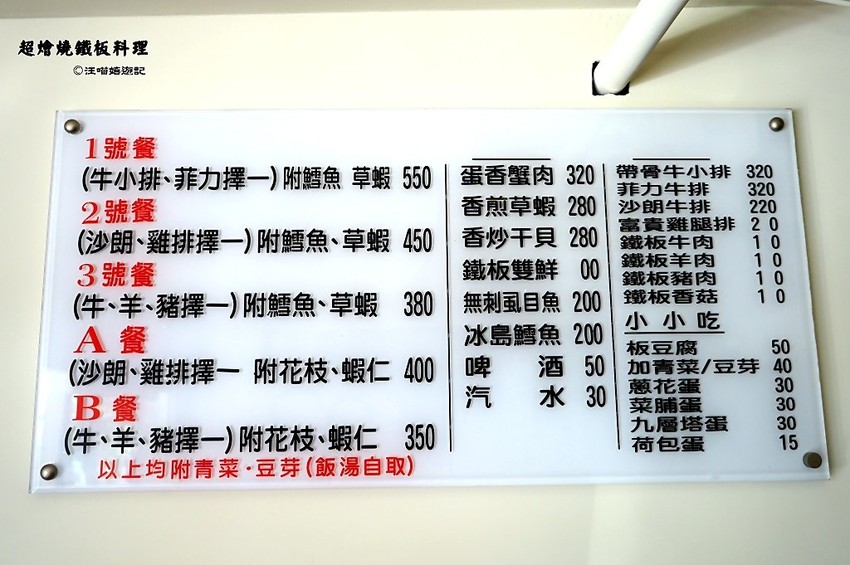 超燴燒鐵板料理
©汪喵嬉遊記
1號餐
(牛小排、菲力擇一)附鱈魚 草蝦 550
2號餐
(沙朗、雞排擇一)附鱈魚、草蝦 450
3號餐
(牛、羊、豬擇一)附鱈魚、草蝦 380
A 餐
(沙朗、雞排擇一 附花枝、蝦仁 400
B 餐
(牛、羊、豬擇一)附花枝、蝦仁 350
以上均附青菜·豆芽(飯湯自取)
蛋香蟹肉 320
香煎草蝦 280
香炒干貝 280
鐵板雙鮮 00
無刺虱目魚 200
冰島鱈魚 200
啤 酒 50
汽 水 30
帶骨牛小排 320
菲力牛排 320
沙朗牛排 220
富貴雞腿排 2 0
鐵板牛肉 1 0
鐵板羊肉 1 0
鐵板豬肉 1 0
鐵板香菇 1 0
小 小 吃
板豆腐 50
加青菜/豆芽 40
蔥花蛋 30
菜脯蛋 30
九層塔蛋 30
荷包蛋 15